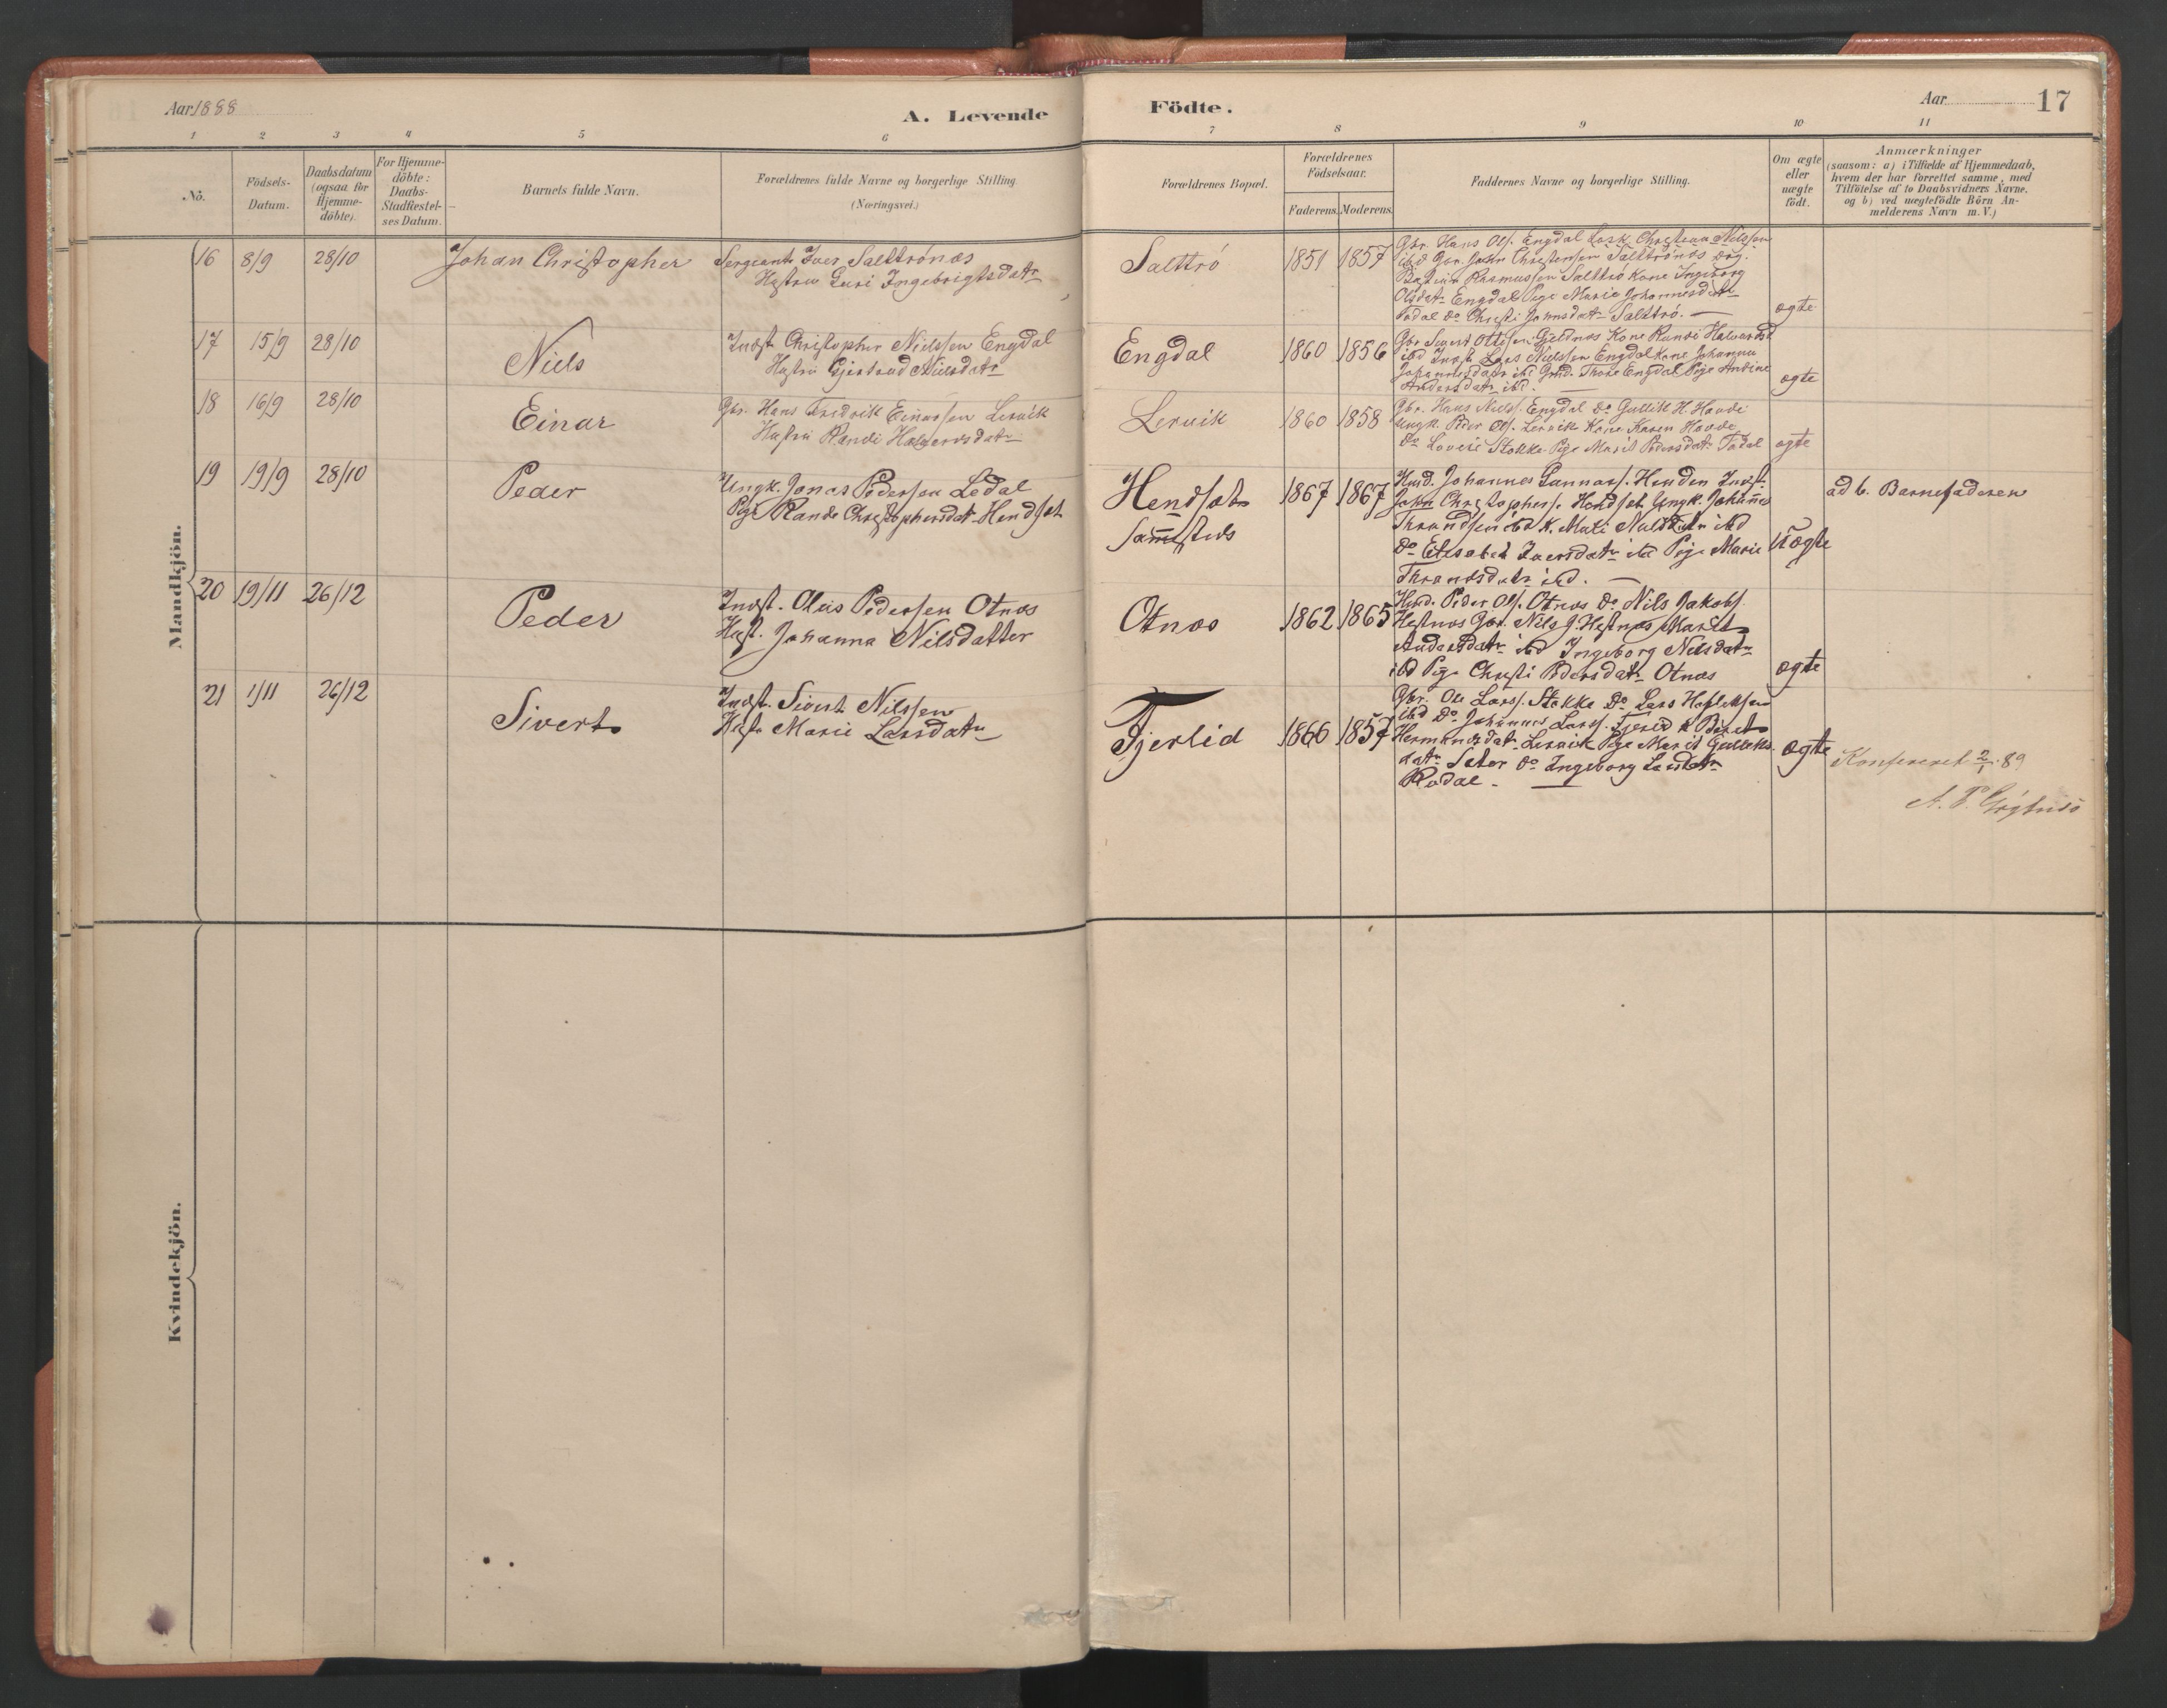 Aar 1888
A. Levende
Födte.
Aar
17
1 2 3 4 5 6 7 8 9 10 11
No.
Födsels-
Datum.
Daabsdatum
(ogsaa for
Hjemme-
döbte).
For Hjemme-
döbte:
Daabs-
Stadfæstel-
ses Datum.
Barnets fulde Navn.
Forældrenes fulde Navne og borgerlige Stilling.
(Næringsvei.)
Forældrenes Bopæl.
Forældrenes
Födselsaar.
Faderens. Moderens.
Faddernes Navne og borgerlige Stilling.
Om ægte
eller
uægte
födt.
Anmærkninger
(saasom: a) i Tilfælde af Hjemmedaab,
hvem der har forrettet samme, med
Tilföielse af to Daabsvidners Navne,
og b) ved uægtefödte Börn An-
melderens Navn m. V.)
Mandkjön.
16 8/9 28/10 Johan Christopher
Sergeant Iver Salttrönæs
Hustru Guri Ingebrigtsdatr
Salttrö 1851 1857
Gbr. Hans Ols. Engdal Christian Nilssen
ibd Gbr. John Christensen Salttrönæs
Rasmussen Salttrö Kone Ingeborg
Olsdatr Engdal Pige Marie Johannesdatr
Todal Do Christi Johnsdatr Salttrö. —
ægte
17 15/9 28/10 Niels
Indst. Christopher Nielssen Engdal
Hustru Gjertrud Nielsdatr
Engdal 1860 1856
Gbr Sivert Ottesen Gjeldnæs Kone Randi
ibd Indst Lars Nielssen Engdal Kone Johanna
Johannesdatr ibd Thore Engdal Pige
Andersdatr ibd. —
ægte
18 16/9 28/10 Einar
Gbr. Hans Fredrik Einarsen Lervik
Hustru Randi Halvorsdatr
Lervik 1860 1858
Gbr. Hans Niels. Engdal Do Gullik H. Hovde
Ungk. Peder Ols. Lervik Kone Karen Hovde
Do Lovise Stokke Pige Marit Pedersdatr Todal
ægte
19 19/9 28/10 Peder
Ungk. Jonas Pedersen Ledal
Pige Rande Christophersdatr Hendset
Hendset
Sammesteds
1867 1867
Husd. Johannes Gunnars. Henden Indst.
John Christophers. Hendset Ungk. Johannes
Throndsen ibd K. Mali Nilsdatr ibd
Do Elisabet Iversdatr ibd Pige Marie
Throndsdatr ibd. —
uægte
ad b. Barnefaderen
20 19/11 26/12 Peder
Indst. Oluis Pedersen Otnæs
Hust. Johanna Nilsdatter
Otnæs 1862 1865
Husd. Peder Ols. Otnæs Do Nils Jakobs.
Hestnæs Gbr. Nils J. Hestnæs Marit
Andersdatr ibd Ingeborg Nilsdatr
ibd Pige Christi Pedersdatr Otnæs
ægte
21 1/11 26/12 Sivert
Indst. Sivert Nilssen
Hustr Marie Larsdatr
Fjerlid 1866 1857
Gbr. Ole Larss. Stokke Do Lars
ibd Do Johannes Larss. Fjerlid K Beret
Hermansdat. Lervik Pige Marit Gulliks
datr Seter Do Ingeborg Larsdatr
Rodal. —
ægte
Konfereret 2/1.89
Kvindekjön.